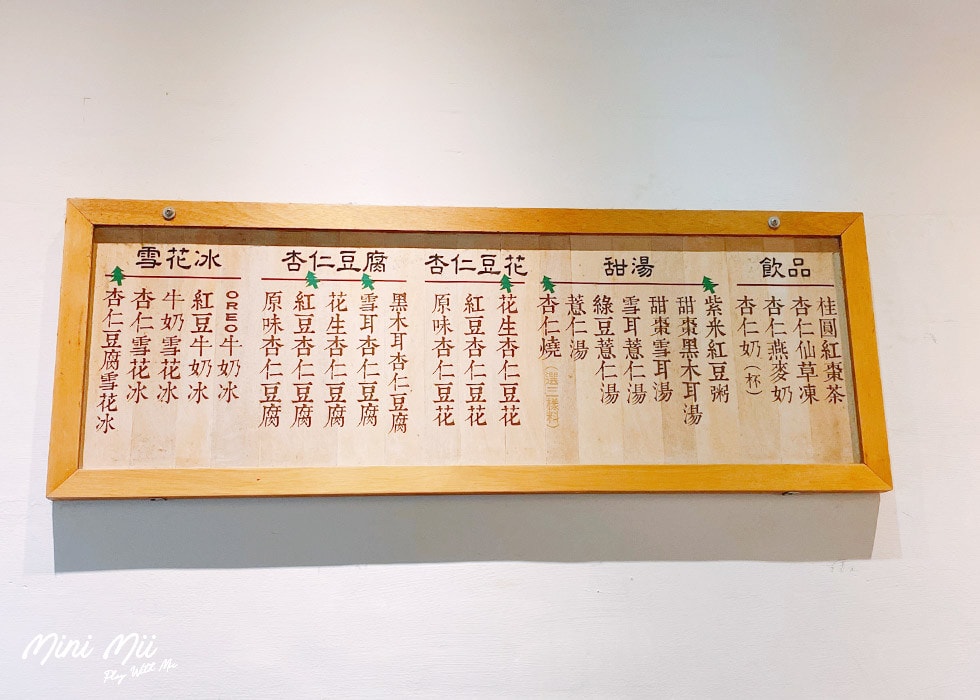 飲品
桂圓紅棗茶
杏仁仙草凍
杏仁燕麥奶
杏仁奶(杯)
甜湯
紫米紅豆粥
甜棗黑木耳湯
甜棗雪耳湯
雪耳薏仁湯
綠豆薏仁湯
薏仁湯
杏仁燒(選三樣料)
杏仁豆花
花生杏仁豆花
紅豆杏仁豆花
原味杏仁豆花
杏仁豆腐
黑木耳杏仁豆腐
雪耳杏仁豆腐
花生杏仁豆腐
紅豆杏仁豆腐
原味杏仁豆腐
雪花冰
OREO牛奶冰
紅豆牛奶冰
牛奶雪花冰
杏仁雪花冰
杏仁豆腐雪花冰
Mini Mii
Play With Me